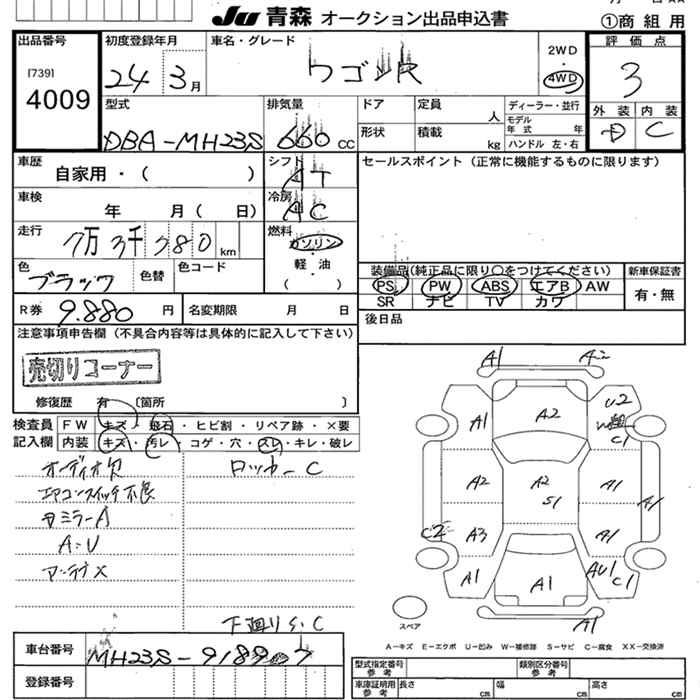 Ju 青森 オークション出品申込書
①商 組 用
出品番号
[739]
4009
初度登録年月
24 3月
車名・グレード
ワゴンR
2WD
4WD
評 価 点
3
外 装 内 装
D C
型式
DBA-MH23S
排気量
660 CC
ドア
定員 人
形状
積載 kg
ディーラー・並行
モデル
年 式 年
ハンドル 左・右
車歴
自家用・( )
シフト
AT
セールスポイント(正常に機能するものに限ります)
車検
年 月( 日)
冷房
AC
走行
7万3千380km
燃料
ガソリン
軽 油
( )
色
ブラック
色替
色コード
装備品(純正品に限り○をつけてください)
PS PW ABS エアB AW
SR ナビ TV カワ
新車保証書
有・無
R券 9.880 円
名変期限 月 日
後日品
注意事項申告欄(不具合内容等は具体的に記入して下さい)
売切りコーナー
修復歴 有 〔箇所 〕
検査員
記入欄
FW キズ・飛石・ヒビ割・リペア跡・×要
内装 キズ・汚レ・コゲ・穴・スレ・キレ・破レ
オーディオ欠
エアコンスイッチ不良
ロッカーC
A:U
アンテナX
下廻りS.C
A1
A2
A1
A2
U2
C1
A2
A2
S1
A1
A1
C2
A3
A1
A1
A1
AU1
C1
A1
スペア
A−キズ E−エクボ U−凹み W−補修跡 S−サビ C−腐食 XX−交換済
車台番号
MH23S-918907
登録番号
型式指定番号
参 考
類別区分番号
参 考
車庫証明用
参 考
長さ cm
幅 cm
高さ cm